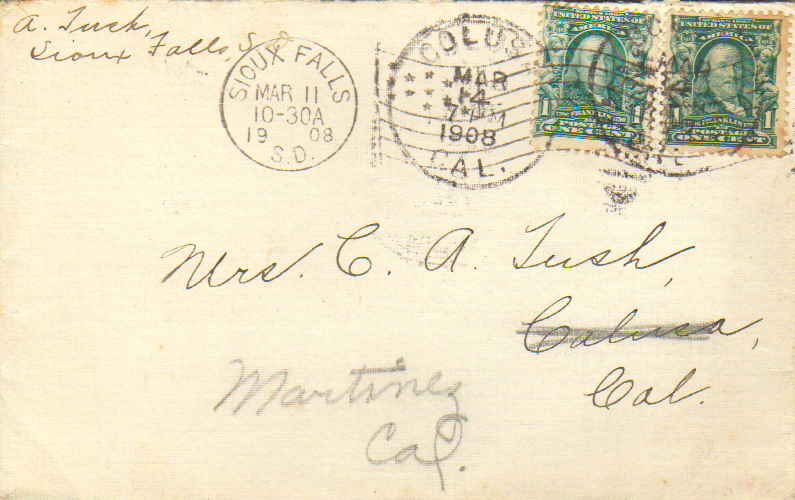 A. Tuck,
Sioux Falls, S. D
SIOUX FALLS
MAR 11
10-30A
1908
S.D.
COLUS
MAR
14
7-AM
1908
CAL.
UNITED STATES OF
AMERICA
FRANKLIN
POSTAGE
1 ONE CENT 1
UNITED STATES OF
AMERICA
FRANKLIN
POSTAGE
1 ONE CENT 1
Mrs. C. A. Tush,
Calusa,
Cal.
Martinez
Cal.